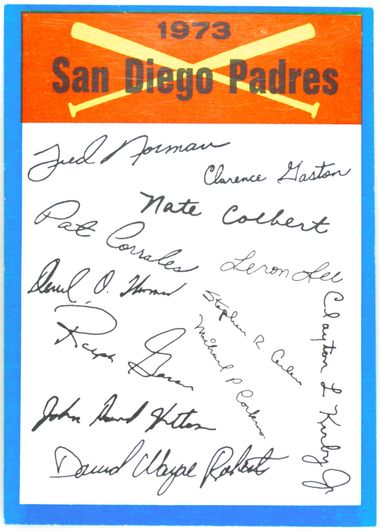 1973
San Diego Padres
Fred Norman
Clarence Gaston
Nate Colbert
Pat Corrales
Leron Lee
Derrel O. Thomas
Stephen R. Arlin
Clayton L Kirby Jr
Ralph Garcia
Michael P Corkins
John David Hilton
David Wayne Roberts